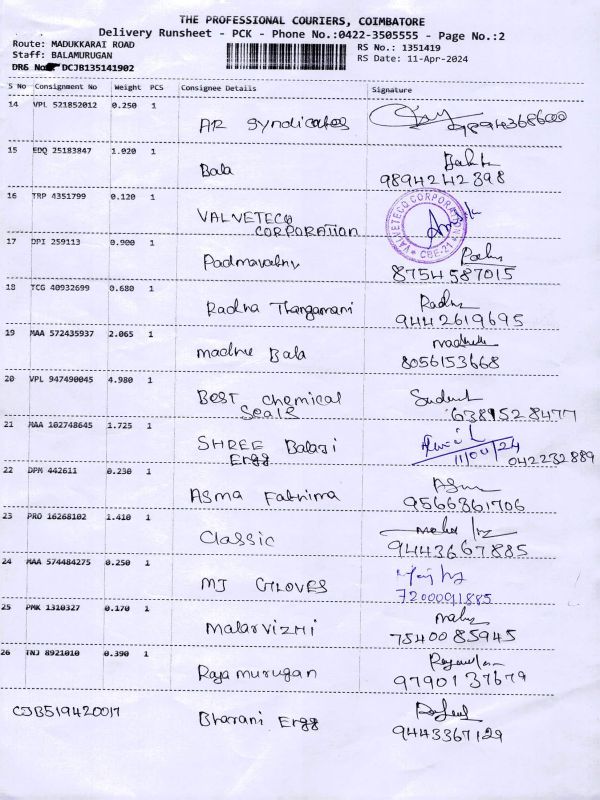 THE PROFESSIONAL COURIERS, COIMBATORE
Delivery Runsheet - PCK - Phone No.:0422-3505555 - Page No.:2
Route: MADUKKARAI ROAD
RS No.: 1351419
Staff: BALAMURUGAN
RS Date: 11-Apr-2024
DRG No DCJB135141902
S No Consignment No Weight PCS Consignee Details Signature
14 VPL 521852012 0.250 1 AR Syndicates 9894368600
15 EDQ 25183847 1.020 1 Bala
9894242398
16 TRP 4351799 0.120 1 VALVETECO
CORPORATION
VALVETECO CORPORATION * CBE-21 *
17 DPI 259113 0.900 1 Padmavathy
8754587015
18 TCG 40932699 0.680 1 Radha Thangamani Radha
9442619695
19 MAA 572435937 2.065 1 madhu Bala
8056153668
20 VPL 947490045 4.980 1 Best chemical
Seals
6381528477
21 MAA 102748645 1.725 1 SHREE Balaji
Engg
11/04/24
042232889
22 DPM 442611 0.230 1 Asma Fathima
9566861706
23 PRO 16268102 1.410 1 Classic
9443667885
24 MAA 574484275 0.250 1 MJ GLOVES
7200091885
25 PMK 1310327 0.170 1 Malarvizhi
7540085945
26 TNJ 8921010 0.390 1 Rajamurugan
9790137679
CJB519420017 Bharani Engg
9443367129